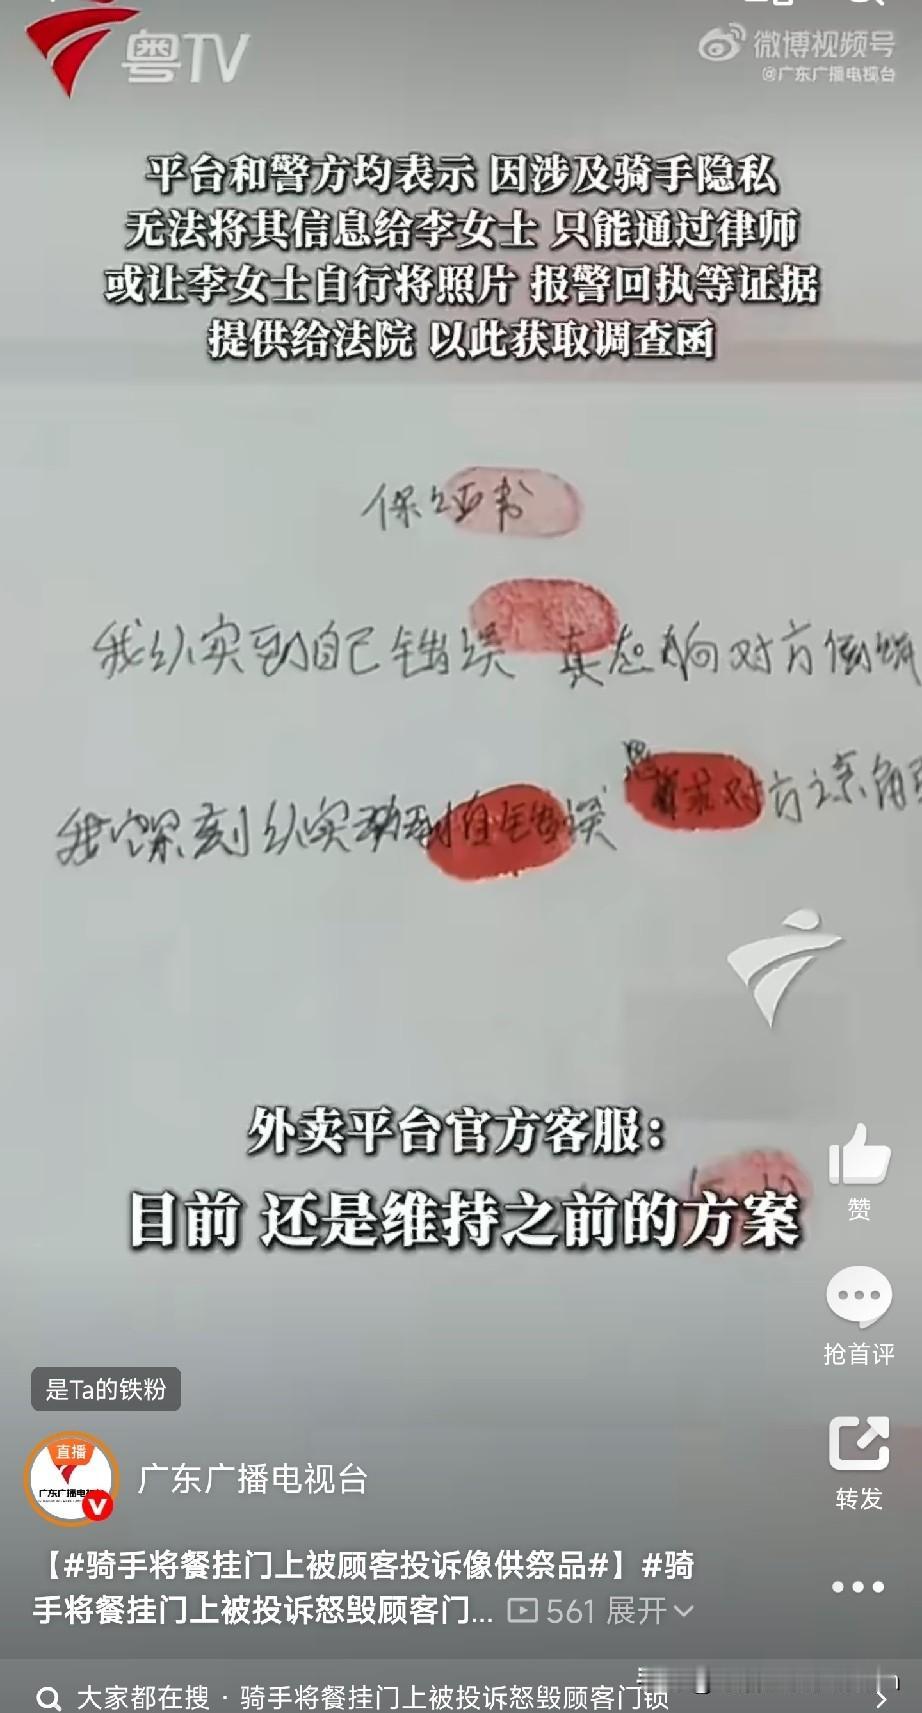 粤TV
微博视频号
@广东广播电视台
平台和警方均表示 因涉及骑手隐私
无法将其信息给李女士 只能通过律师
或让李女士自行将照片 报警回执等证据
提供给法院 以此获取调查函
保证书
我认实到自己错误 真 对方
我深刻认实到自错误 恳求对方谅解
外卖平台官方客服:
目前 还是维持之前的方案
赞
抢首评
是Ta的铁粉
直播
广东广播电视台
转发
【#骑手将餐挂门上被顾客投诉像供祭品#】#骑
手将餐挂门上被投诉怒毁顾客门... 561 展开
大家都在搜·骑手将餐挂门上被投诉怒毁顾客门锁